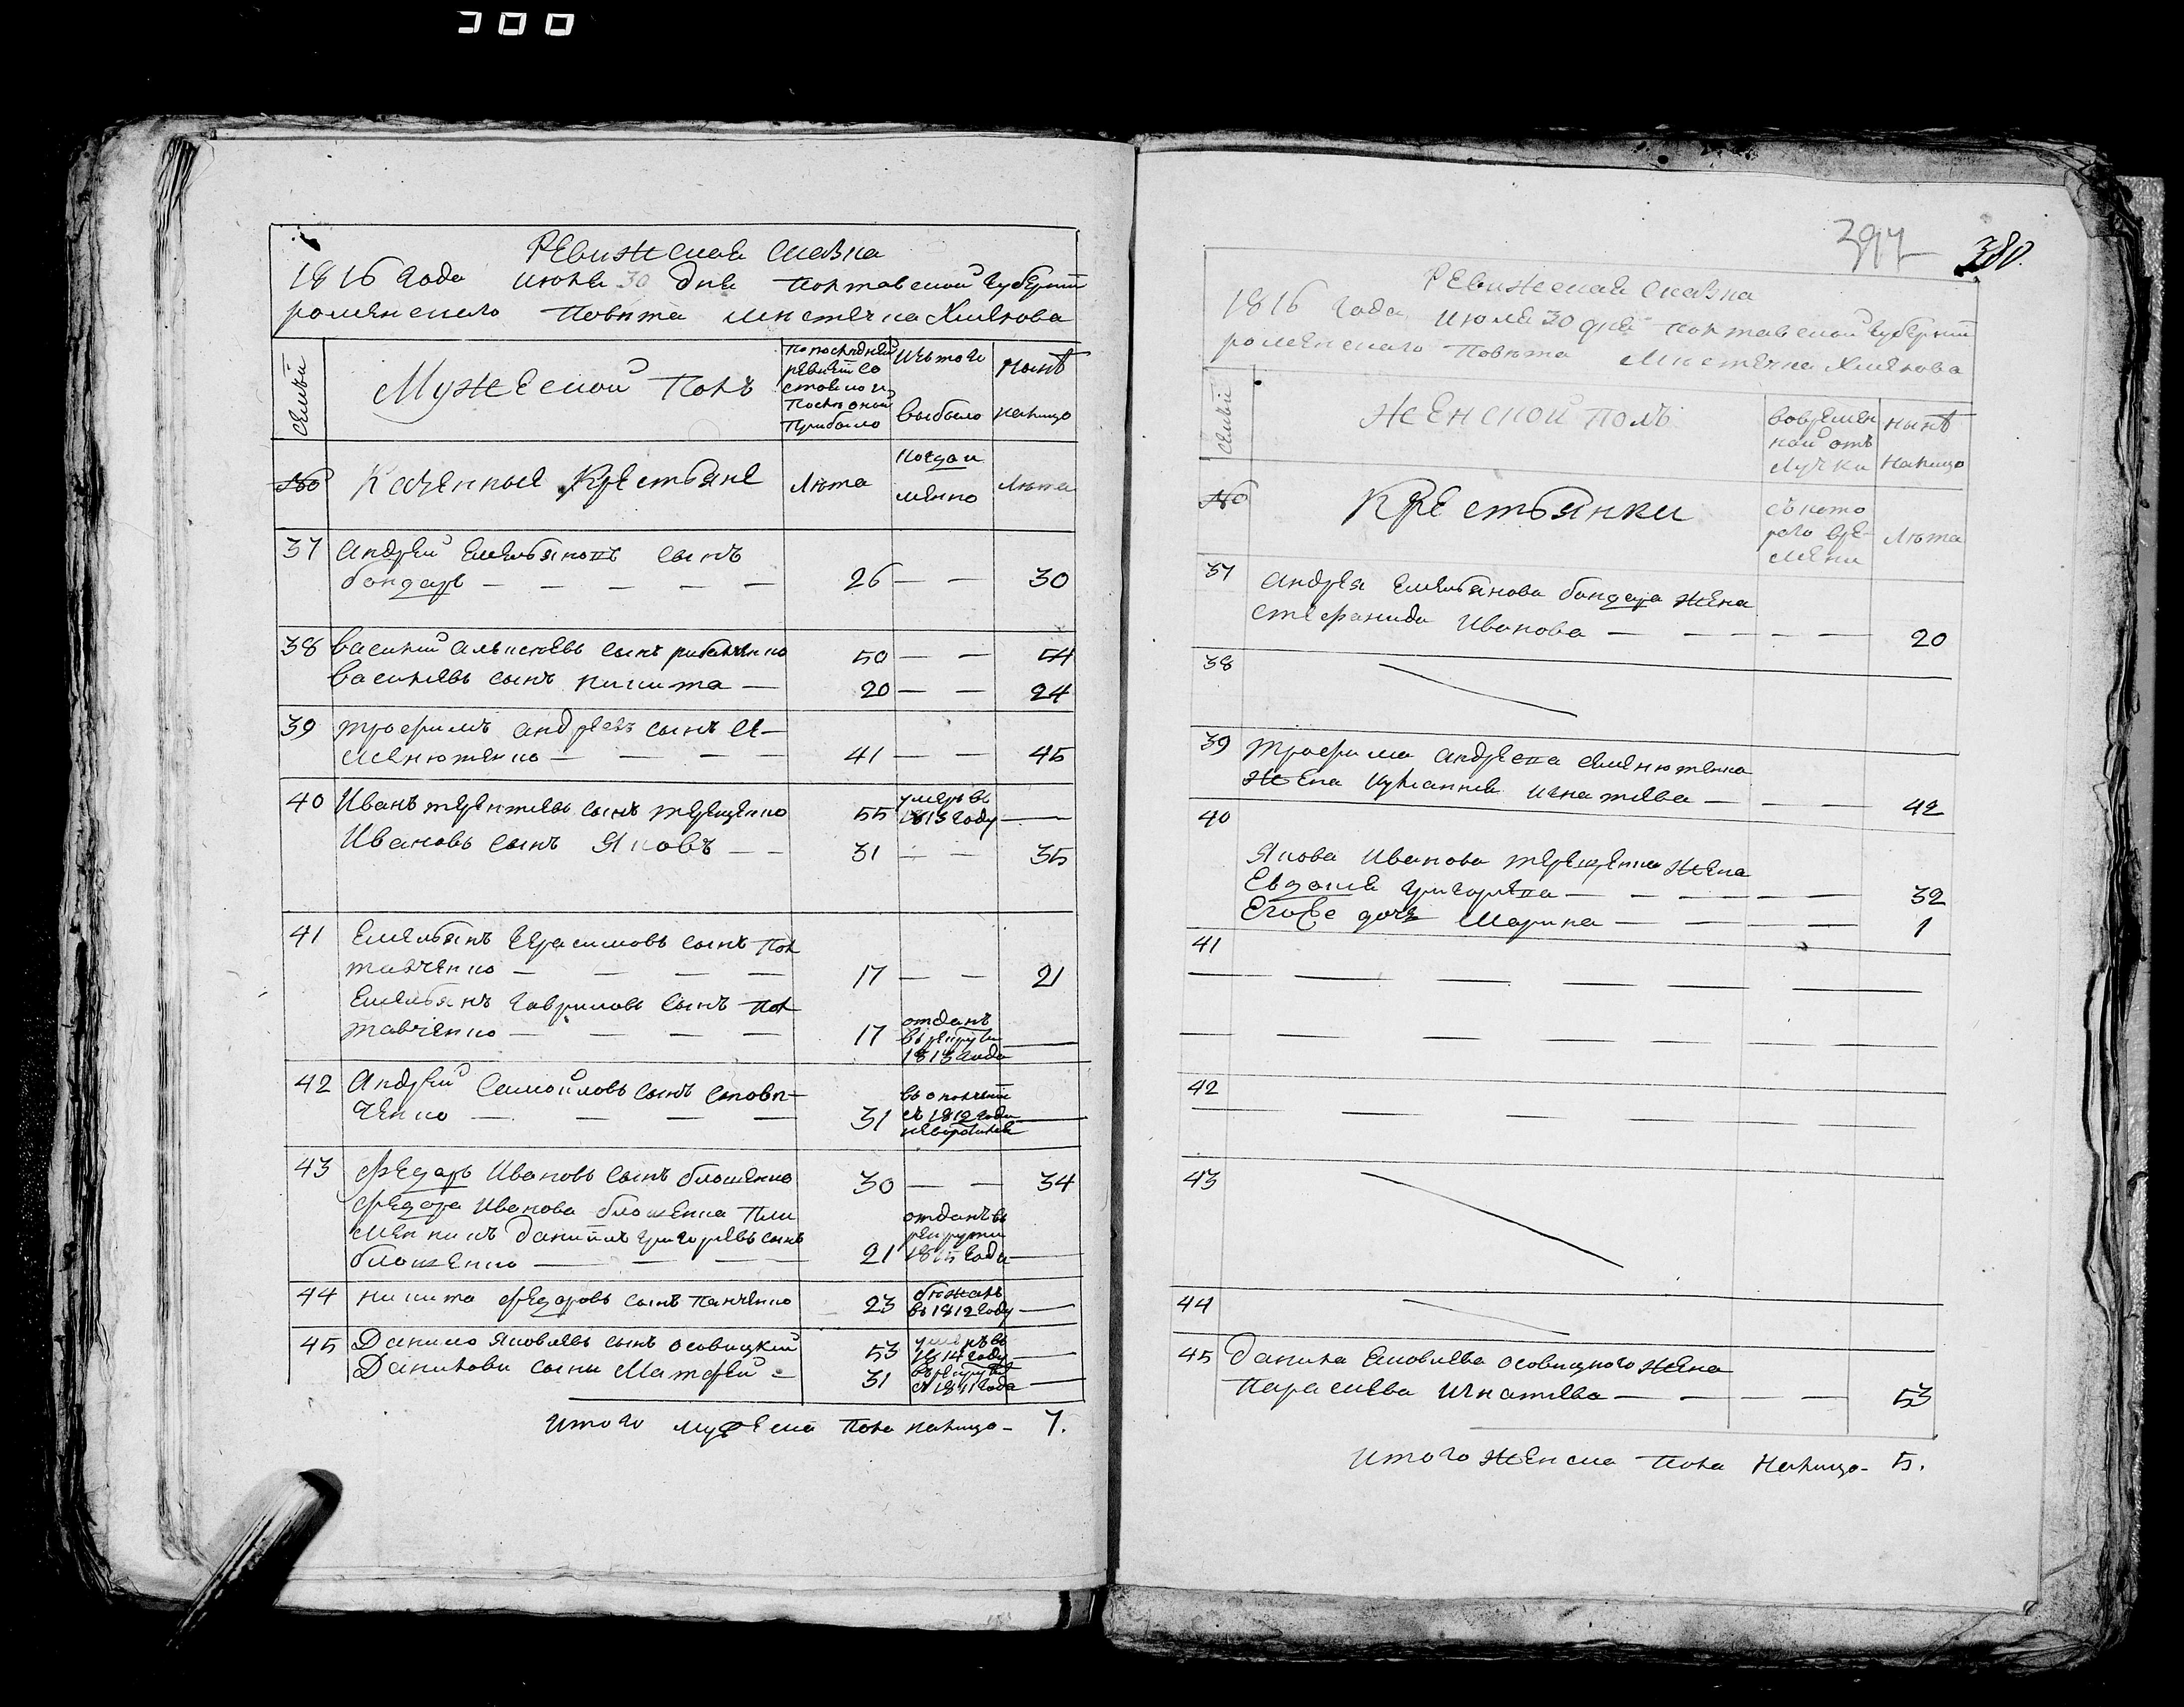 300
Ревижская сказка
1816 года июля 30 дня Полтавской губернии
роменского повѣта мѣстечка Хмелова
семьи
Мужеской полъ
по последней
ревизіи со
стояло и
послѣ оной
прибыло
Изъ того
выбыло
нынѣ
налицо
№
Казенные Крестьяне
Лѣта
когда и
менно
Лѣта
37 Андрей Емельяновъ сынъ
бондарь — — — — — 26 — — 30
38 Василий Алексѣевъ сынъ рибалченко 50 — — 54
Васильевъ сынъ никита — 20 — — 24
39 трофимъ андреевъ сынъ се-
менютенко — — — — 41 — — 45
40 Иванъ терентиевъ сынъ терещенко 55 умеръ въ
1813 году —
Ивановъ сынъ Яковъ — — 31 — — 35
41 Емельянъ Герасимовъ сынъ пол
тавченко — — — — 17 — — 21
Емельянъ гавриловъ сынъ пол
тавченко — — — — 17 отданъ
въ рекруты
1813 года —
42 Андрей Самойловъ сынъ стовп-
ченко — — — — 31 въ ополченіи
съ 1812 года
—
43 федаръ Ивановъ сынъ блошенко 30 — — 34
федора Иванова блошенка пле
менникъ данило григорьевъ сынъ
блошенко — — — 21 отданъ въ
рекруты
1815 года —
44 никита федоровъ сынъ панченко 23 бѣжалъ
въ 1812 году —
45 Данило Яковлевъ сынъ осовицкий 53 умеръ въ
1814 году —
Данилови сыни Матфей - 31 въ рекруты
съ 1811 года —
Итого мужеска пола налицо - 7.
397 380.
Ревижская сказка
1816 года июля 30 дня полтавской губернии
роменскаго повѣта мѣстечка Хмелова
семьи
женской полъ
вовремен
ной отъ
лучки
нынѣ
налицо
№
Крестьянки
съ кото
рого вре-
мени
Лѣта
37 андрея Емельянова бондаря жена
стефанида Иванова — — — — — 20
38
39 трофима андреева семенютенка
жена Иулианния игнатиева — — — 42
40
Якова Иванова терещенка жена
Евдокия григориева — — — — — 32
Егоже дочь Марина — — — — 1
41
42
43
44
45 данила Яковлева осовицкого жена
параскева игнатиева — — — — 53
Итого женска пола налицо - 5.